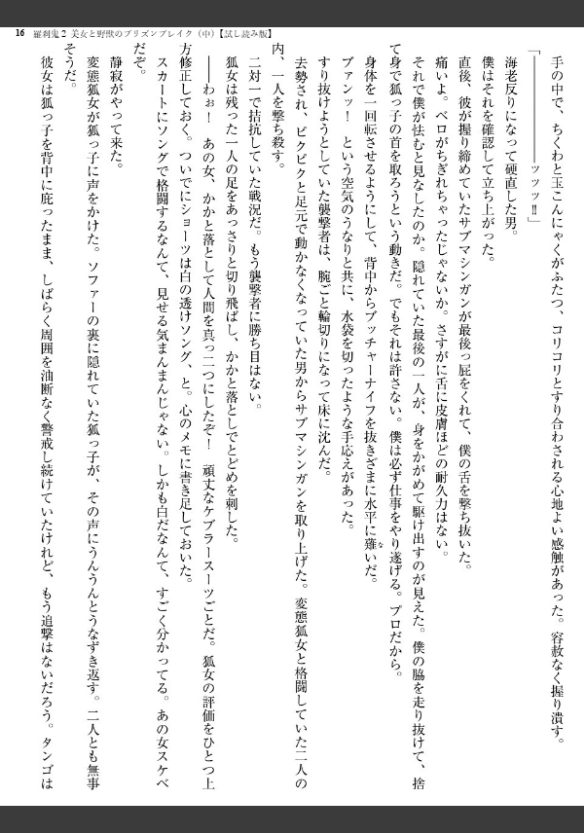 16 羅刹鬼2 美女と野獣のプリズンブレイク（中）【試し読み版】
手の中で、ちくわと玉こんにゃくがふたつ、コリコリとすり合わされる心地よい感触があった。容赦なく握り潰す。
「――――――ッッッ!!」
海老反りになって硬直した男。
僕はそれを確認して立ち上がった。
直後、彼が握り締めていたサブマシンガンが最後っ屁をくれて、僕の舌を撃ち抜いた。
痛いよ。ベロがちぎれちゃったじゃないか。さすがに舌に皮膚ほどの耐久力はない。
それで僕が怯むと見なしたのか。隠れていた最後の一人が、身をかがめて駆け出すのが見えた。僕の脇を走り抜けて、捨
て身で狐っ子の首を取ろうという動きだ。でもそれは許さない。僕は必ず仕事をやり遂げる。プロだから。
身体を一回転させるようにして、背中からブッチャーナイフを抜きざまに水平に薙いだ。
な
ブァンッ！　という空気のうなりと共に、水袋を切ったような手応えがあった。
すり抜けようとしていた襲撃者は、腕ごと輪切りになって床に沈んだ。
去勢され、ビクビクと足元で動かなくなっていた男からサブマシンガンを取り上げた。変態狐女と格闘していた二人の
内、一人を撃ち殺す。
二対一で拮抗していた戦況だ。もう襲撃者に勝ち目はない。
狐女は残った一人の足をあっさりと切り飛ばし、かかと落としでとどめを刺した。
――わぉ！　あの女、かかと落として人間を真っ二つにしたぞ！　頑丈なケブラースーツごとだ。狐女の評価をひとつ上
方修正しておく。ついでにショーツは白の透けソング、と。心のメモに書き足しておいた。
スカートにソングで格闘するなんて、見せる気まんまんじゃない。しかも白だなんて、すごく分かってる。あの女スケベ
だぞ。
静寂がやって来た。
変態狐女が狐っ子に声をかけた。ソファーの裏に隠れていた狐っ子が、その声にうんうんとうなずき返す。二人とも無事
そうだ。
彼女は狐っ子を背中に庇ったまま、しばらく周囲を油断なく警戒し続けていたけれど、もう追撃はないだろう。タンゴは